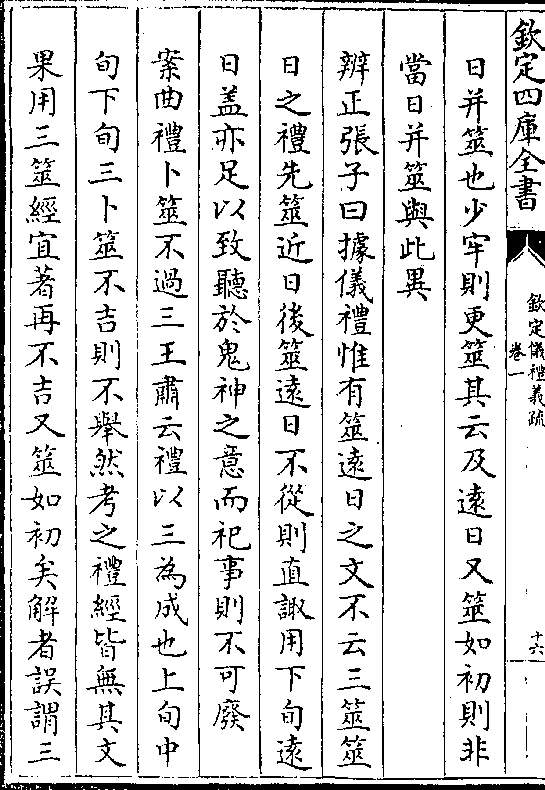 欽定四庫全書
欽定儀禮義疏
卷一
十六
日并筮也少牢則更筮其云及遠日又筮如初則非
當日并筮與此異
辨正張子曰據儀禮惟有筮遠日之文不云三筮筮
日之禮先筮近日後筮遠日不從則直諏用下旬遠
日盖亦足以致聽於鬼神之意而祀事則不可廢
案曲禮卜筮不過三王肅云禮以三為成也上旬中
旬下旬三卜筮不吉則不舉然考之禮經皆無其文
果用三筮經宜著再不吉又筮如初矣解者誤謂三